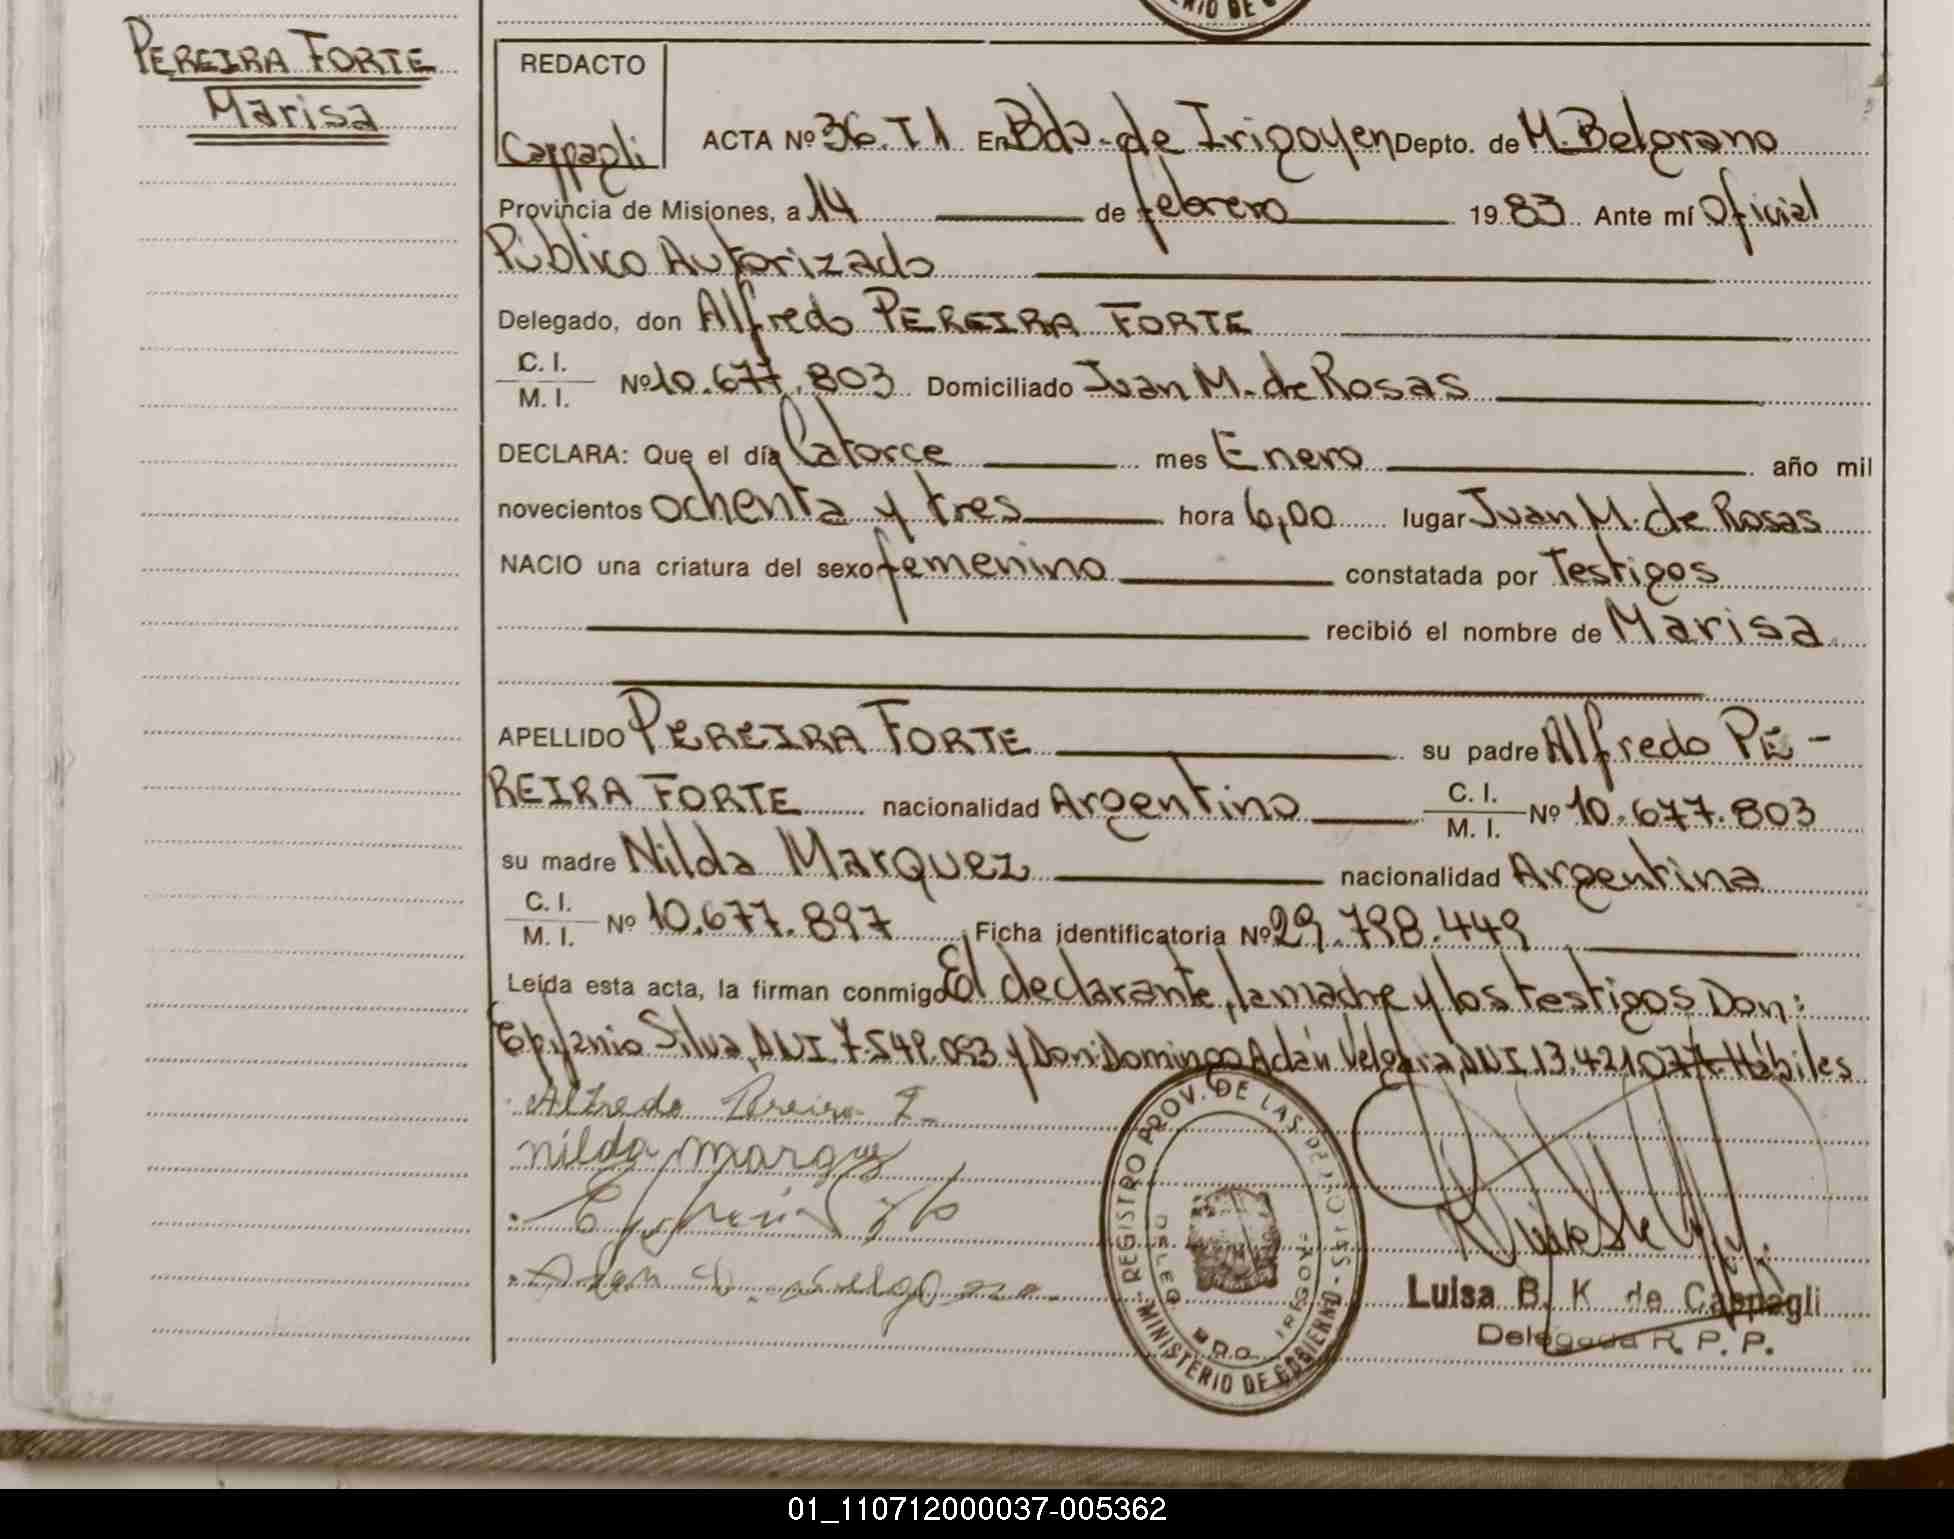 PEREIRA FORTE
Marisa
REDACTO
Cappagli
ACTA Nº 36. T1 En Bdo. de Irigoyen Depto. de M. Belgrano
Provincia de Misiones, a 14 de febrero 1983. Ante mí Oficial
Público Autorizado
Delegado, don Alfredo PEREIRA FORTE
C. I.
M. I. Nº 10.677.803 Domiciliado Juan M. de Rosas
DECLARA: Que el día Catorce mes Enero año mil
novecientos ochenta y tres hora 6,00 lugar Juan M. de Rosas
NACIO una criatura del sexo femenino constatada por Testigos
recibió el nombre de Marisa
APELLIDO PEREIRA FORTE su padre Alfredo PE-
REIRA FORTE nacionalidad Argentino C. I. M. I. Nº 10.677.803
su madre Nilda MARQUEZ nacionalidad Argentina
C. I.
M. I. Nº 10.677.897 Ficha identificatoria Nº 29.798.449
Leída esta acta, la firman conmigo El declarante, la madre y los testigos Don:
Epifanio Silva, DNI 7.549.093 y Don: Domingo Adán Velgara, DNI 13.421.077 Hábiles
Alfredo Pereira F.
nilda marquez
REGISTRO PROV. DE LAS PERSONAS - MINISTERIO DE GOBIERNO -
BDO. IRIGOYEN
Luisa B. K de Cappagli
Delegada R. P. P.
01_110712000037-005362